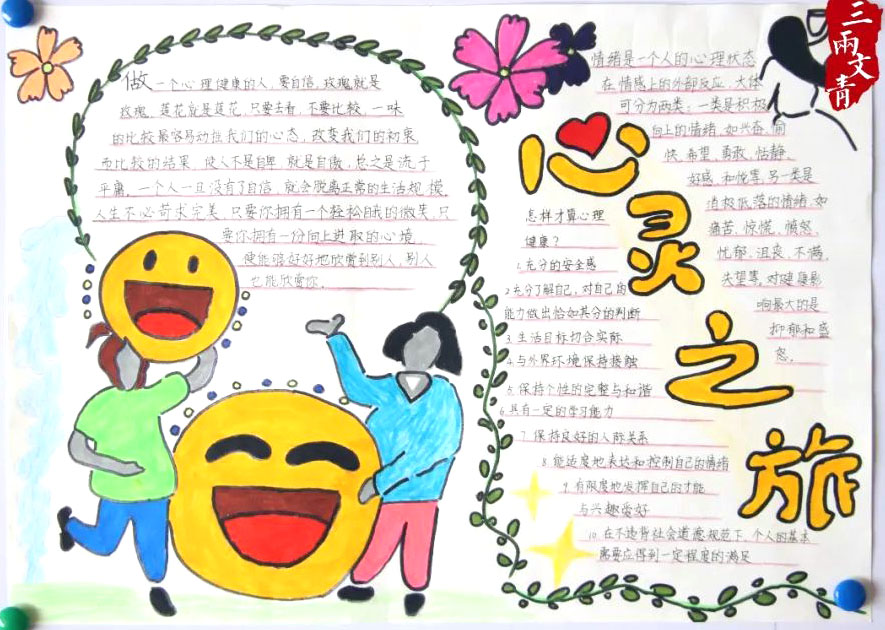 做一个心理健康的人,要自信,玫瑰就是
玫瑰,莲花就是莲花,只要去看,不要比较,一味
的比较最容易动摇我们的心态,改变我们的初衷
而比较的结果,使人不是自卑,就是自傲,总之是流于
平庸。一个人一旦没有了自信,就会脱离正常的生活规模,
人生不必苛求完美,只要你拥有一个轻松自我的微笑,只
要你拥有一份向上进取的心境,
便能跨好好地欣赏到别人,别人
也能欣赏你.
心灵之旅
情绪是一个人的心理状态
在情感上的外部反应,大体
可分为两类:一类是积极
向上的情绪,如兴奋、愉
快、希望、勇敢、恬静、
好感、和悦等,另一类是
消极低落的情绪,如
痛苦、惊慌、愤怒、
忧郁、沮丧、不满、
失望等,对健康影
响最大的是
抑郁和
怎样才算心理
健康?
1.充分的安全感
2.充分了解自己,对自己的
能力做出恰如其分的判断
3.生活目标切合实际
4.与外界环境保持接触
5.保持个性的完整与和谐
6.具有一定的学习能力
7.保持良好的人际关系
8.能适度地表达和控制自己的情绪
9.有限度地发挥自己的才能
与兴趣爱好
10.在不违背社会道德规范下,个人的基本
需要应得到一定程度的满足
三兩文青